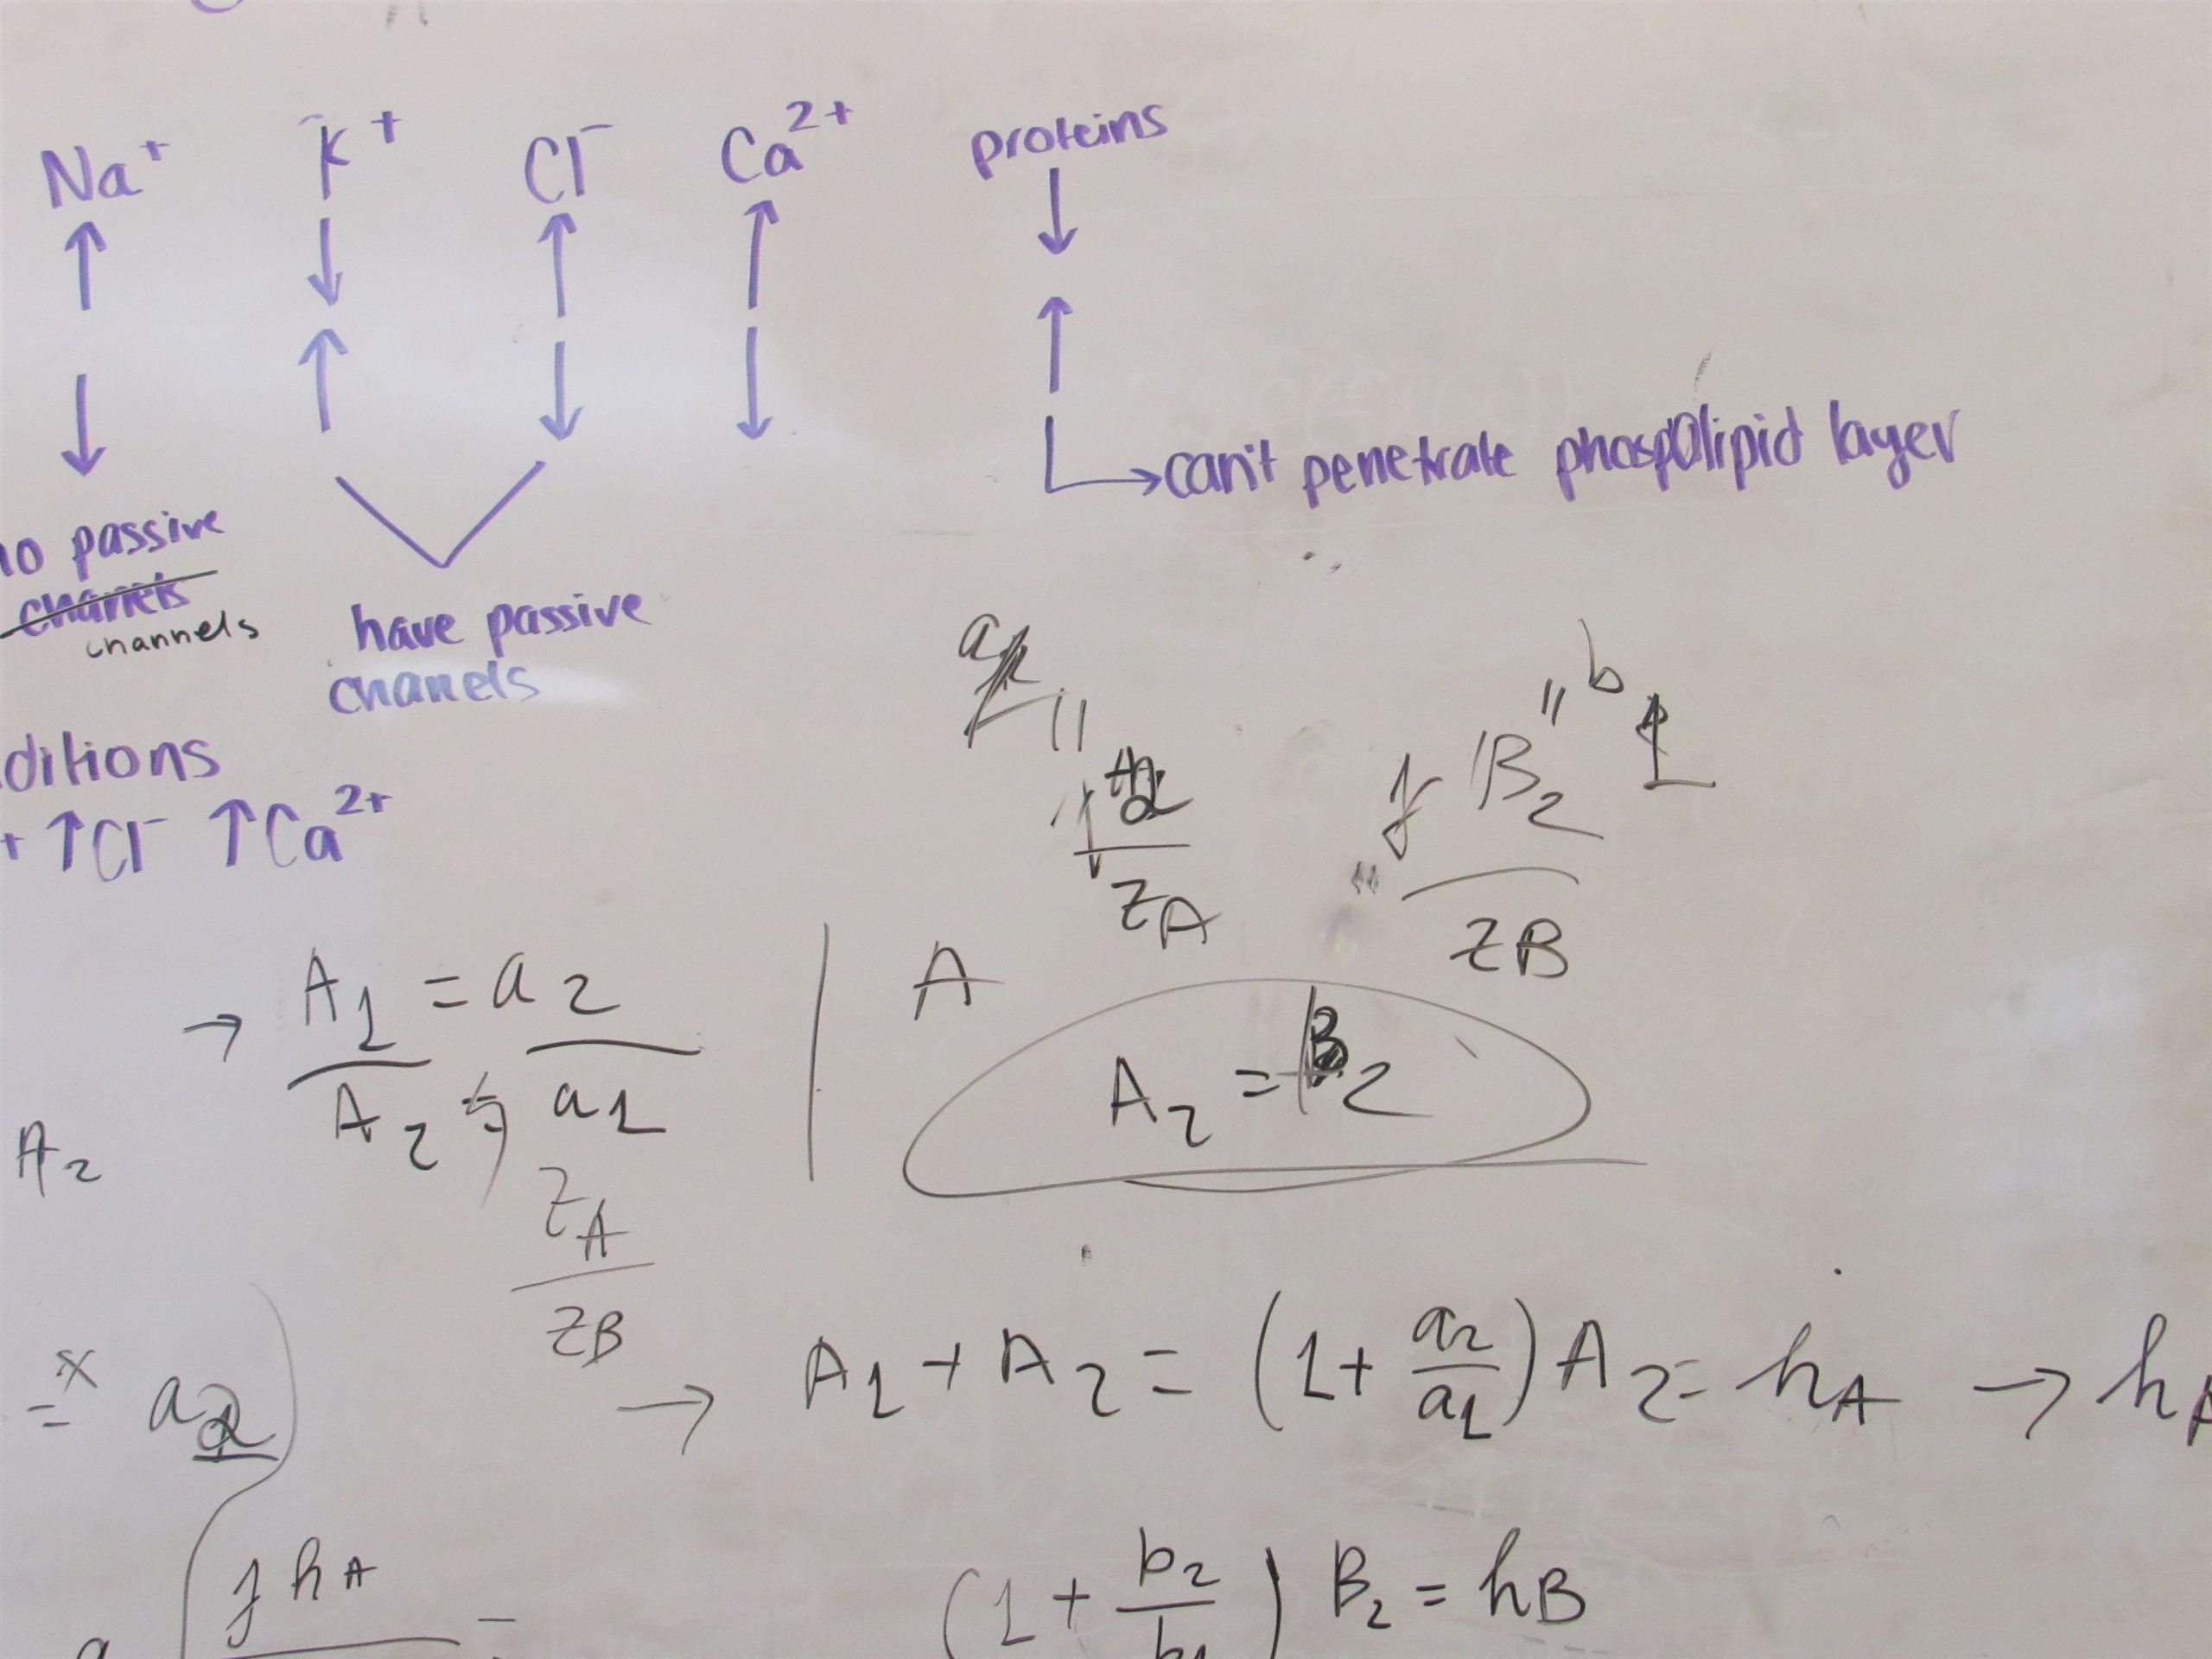 Na⁺ K⁺ Cl⁻ Ca²⁺ proteins
↑ ↓ ↑ ↑ ↓
↓ ↑ ↓ ↓ ↑
→ can't penetrate phospolipid layer
passive
chanels
channels
have passive
chanels
ditions
+ ↑Cl⁻ ↑Ca²⁺
a
" b
B₂
zA
zB
→ A₁/A₂ = a₂/a₁
A
A₂ = B₂
A₂
zA/zB
→ A₁ + A₂ = (1 + a₂/a₁) A₂ = hA → h
= a₂
hA
(1 + b₂/b₁) B₂ = hB